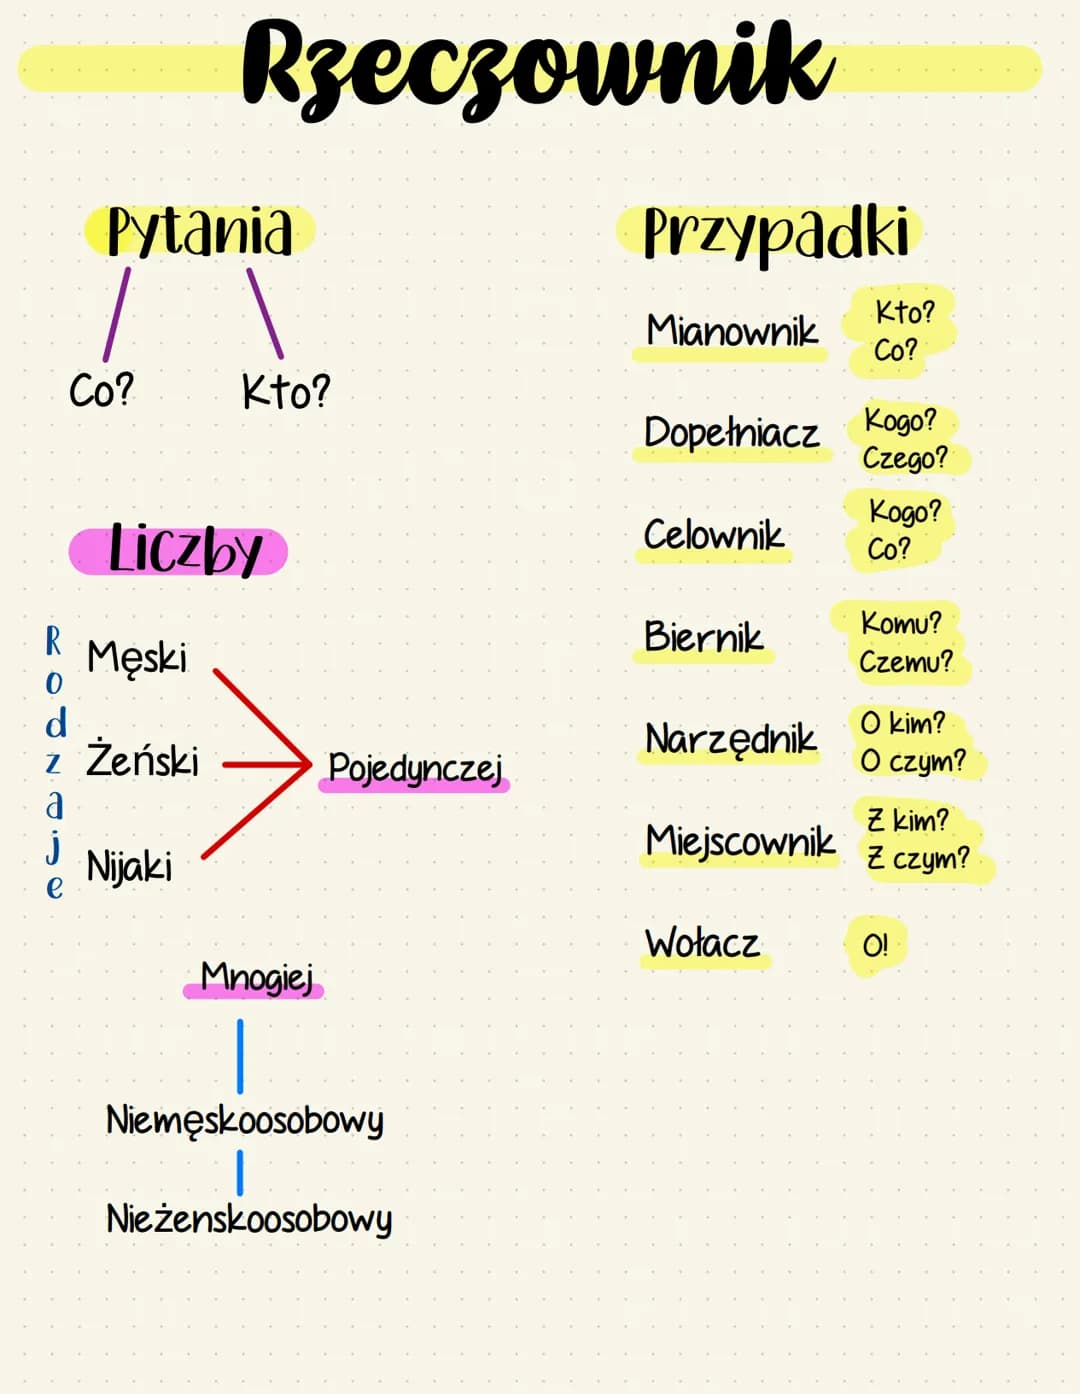 Rzeczownik
Pytania
Co?
Kto?
Liczby
Rodzaje
Męski
Żeński
Nijaki
Pojedynczej
Mnogiej
Niemęskoosobowy
Nieżenskoosobowy
Przypadki
Mianownik
Kto?
Co?
Dopełniacz
Kogo?
Czego?
Celownik
Kogo?
Co?
Biernik
Komu?
Czemu?
Narzędnik
O kim?
O czym?
Miejscownik
Z kim?
Z czym?
Wołacz
O!